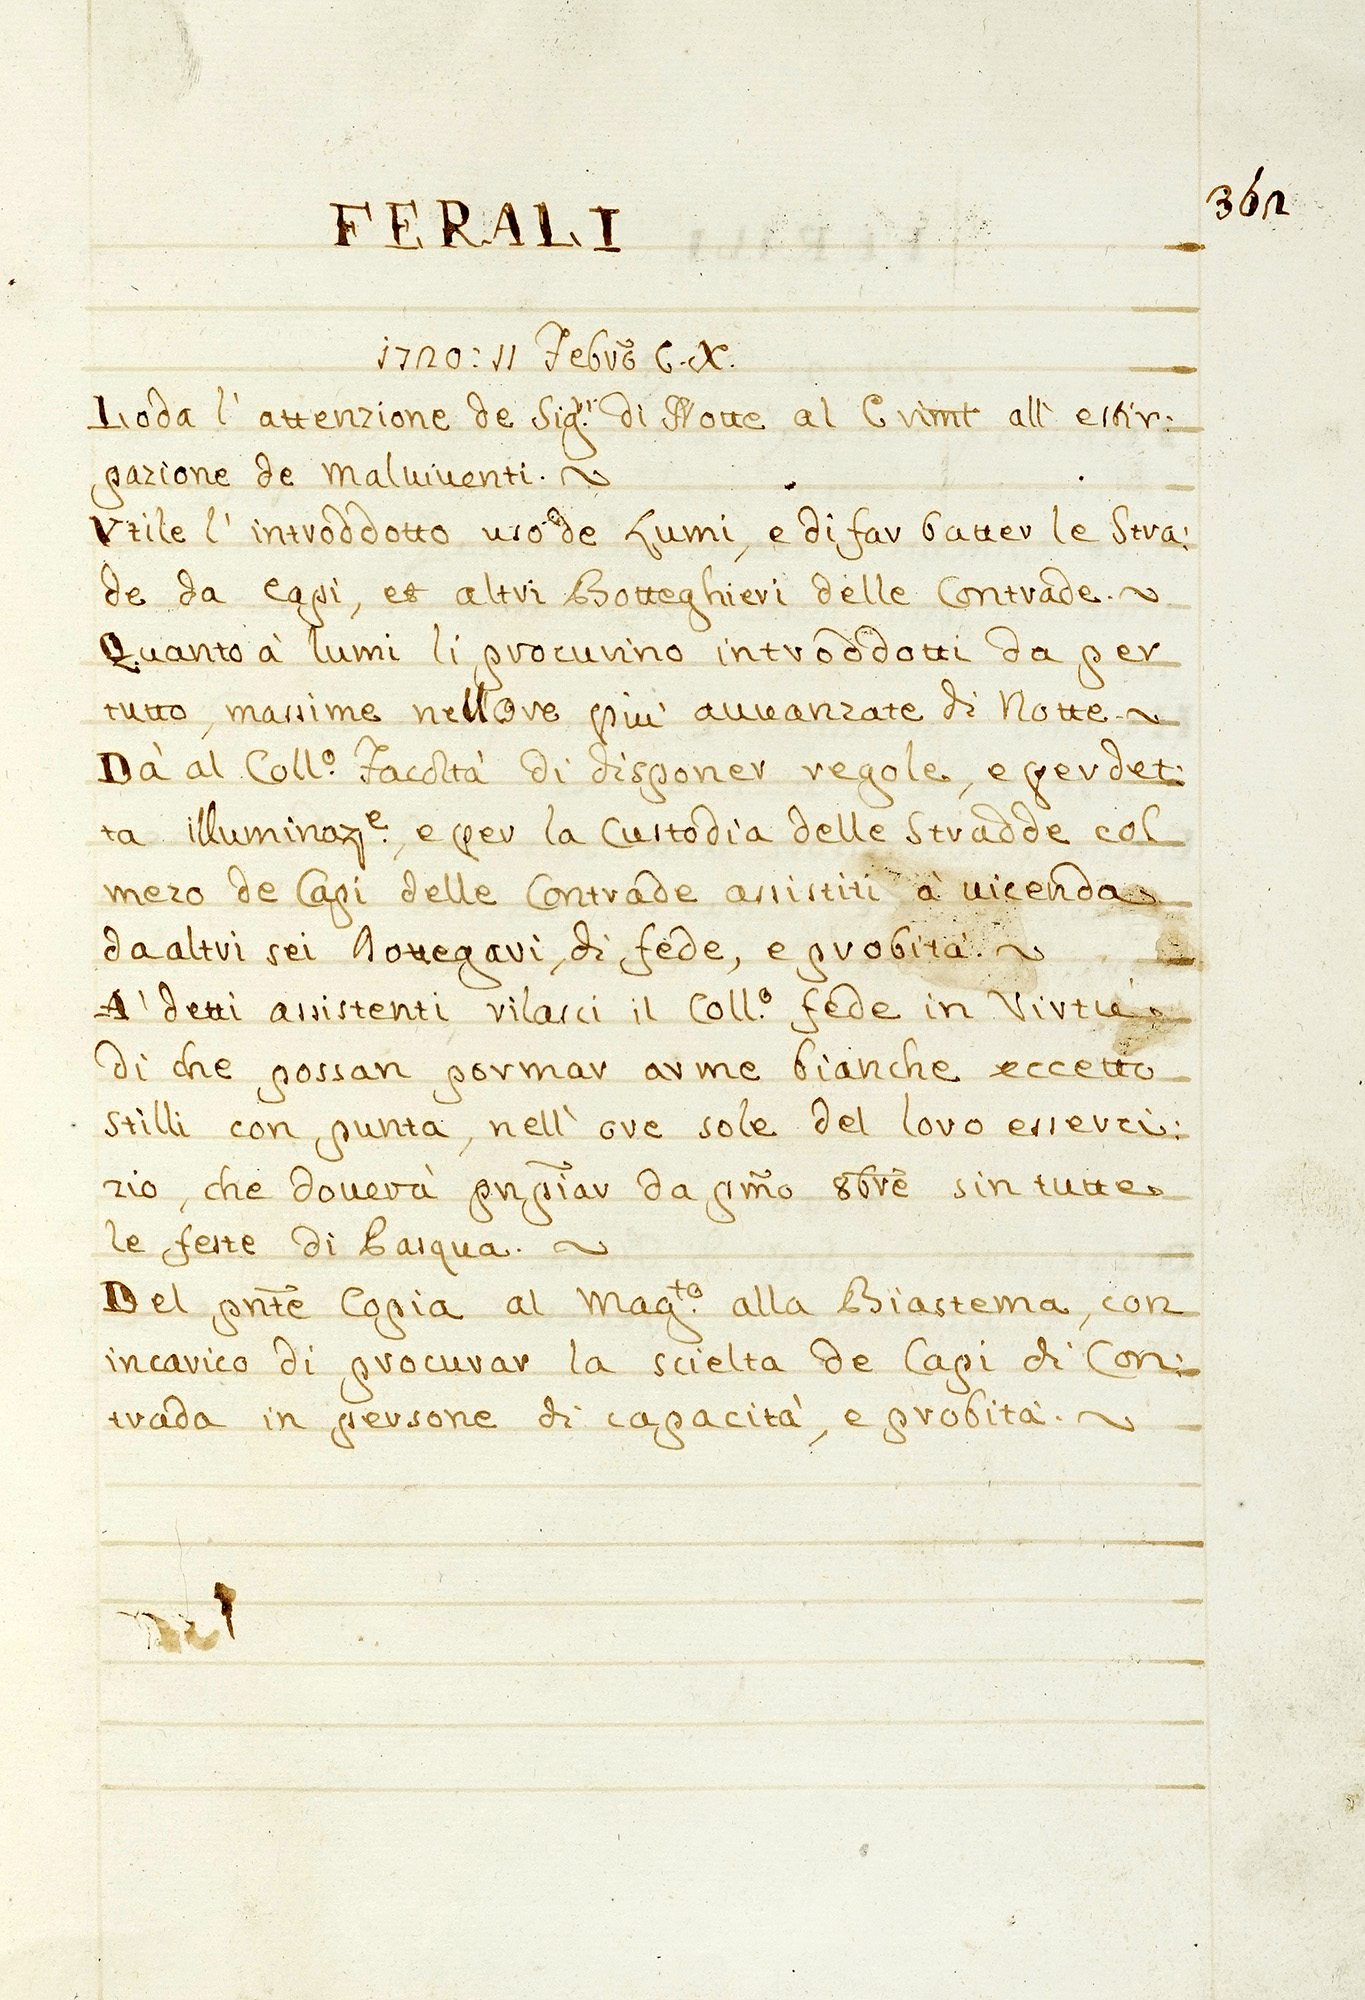 362
FERALI
1720: 11 Febrõ C.X.
Loda l' attenzione de Sig.ri di Notte al Crimł all' estir:
pazione de malviventi.
Vtile l' introddotto uso de Lumi, e di far batter le Stra:
de da Capi, et altri Botteghieri delle Contrade.
Quanto à lumi li procurino introddotti da per
tutto, massime nell'Ore più auuanzate di Notte.
Dà al Coll.o Facoltà di disponer regole, e per det:
ta illuminaz.e, e per la Custodia delle Stradde col
mezo de Capi delle Contrade assistiti à uicenda
da altri sei Bottegari, di fede, e probità.
A' detti assistenti rilasci il Coll.o fede in Virtù
di che possan portar arme bianche eccetto
stilli con punta, nell' ore sole del loro esserci:
zio, che douerà pnp̃iar da pm̃o 8brẽ sin tutte
le feste di Pasqua.
Del pnt̃e Copia al Mag.to alla Biastema, con
incarico di procurar la scielta de Capi di Con:
trada in persone di capacità, e probità.